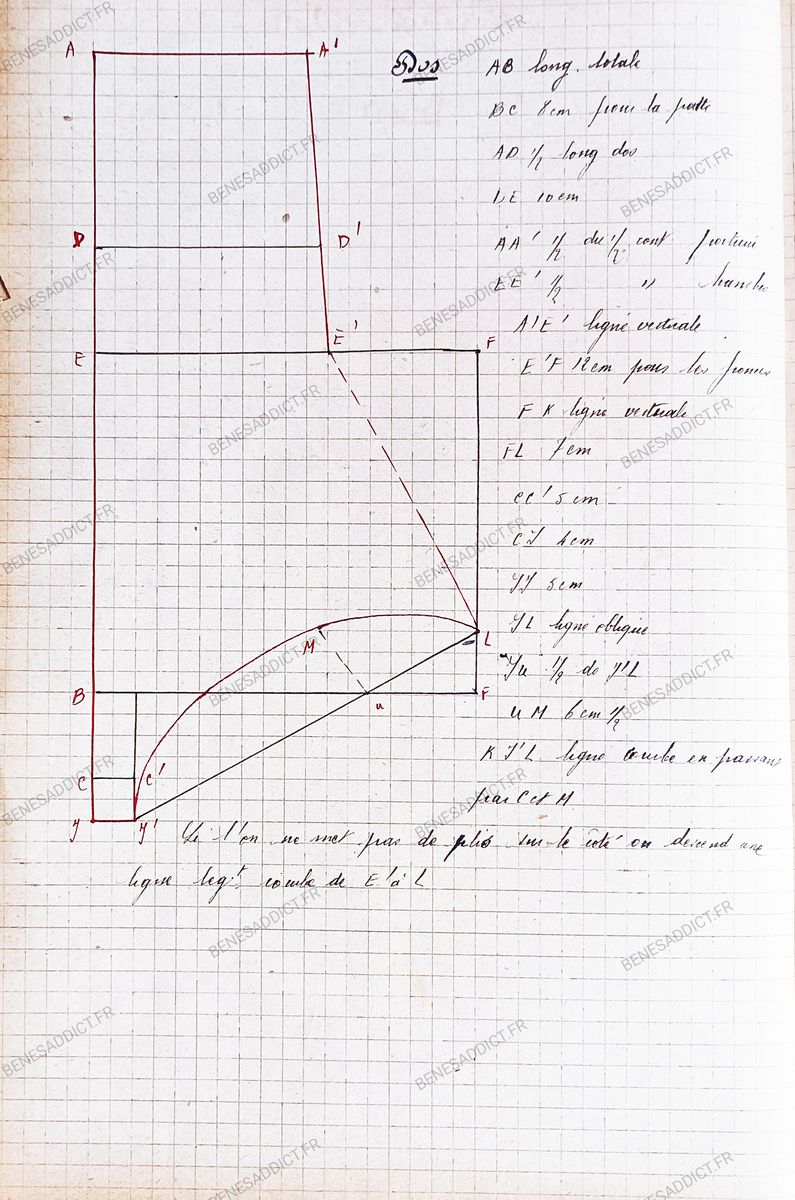 Dos
AB long. totale
BC 8cm pour la patte
AD 1/2 long dos
DE 10cm
AA' 1/2 du 1/2 cont poitrine
EE' 1/2 " hanches
A'E' ligne verticale
E'F 12cm pour les fronces
FK ligne verticale
FL 7cm
CC' 5cm
CY 4cm
YY 5cm
YL ligne oblique
Yu 1/2 de Y'L
uM 6cm 1/2
K Y'L ligne courbe en passant
par C et M
Si l'on ne met pas de plis sur le côté on descend une
ligne leg't courbe de E' à L
A
A'
D
D'
E
E'
F
M
L
B
u
F
C
C'
Y
Y'
BENESADDICT.FR